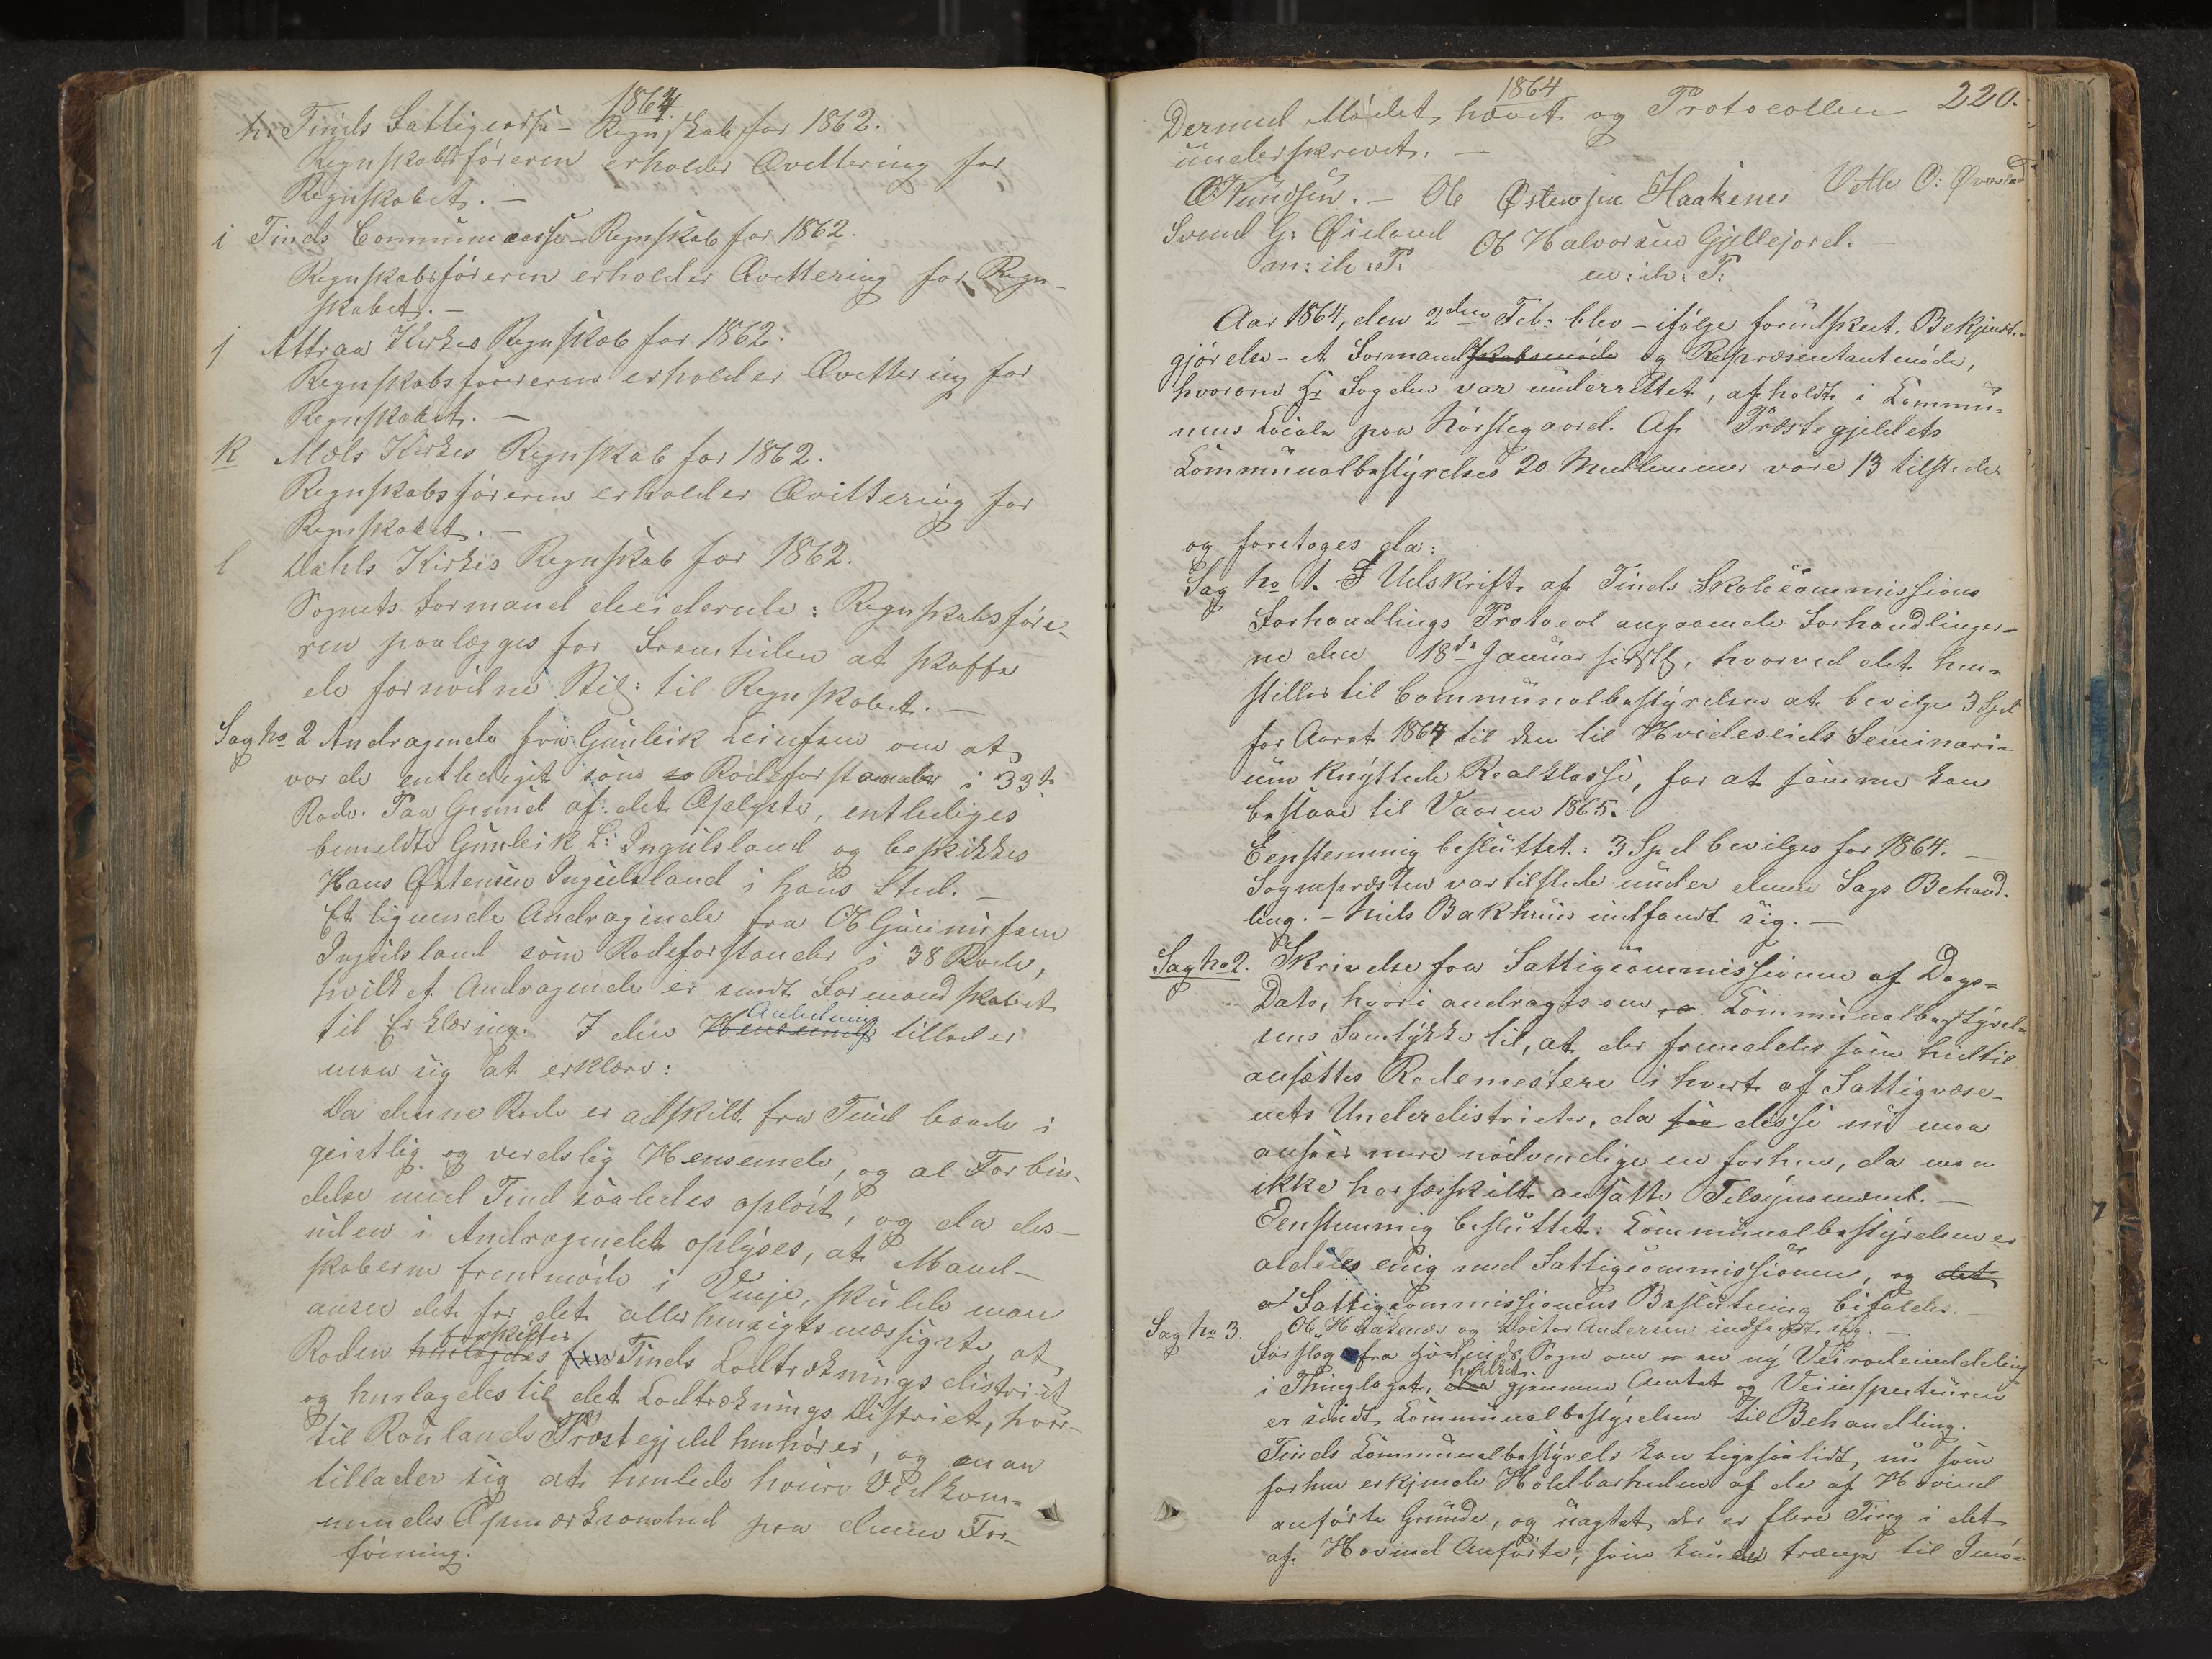 1864
h. Tinds Fattigcasse-Regnskab for 1862.
Regnskabsføreren erholder Qvittering for
Regnskabet. —
i Tinds Communecasse-Regnskab for 1862.
Regnskabsføreren erholder Qvittering for Regn-
skabet. —
j Attraa Kirkes Regnskab for 1862.
Regnskabsføreren erholder Qvittering for
Regnskabet. —
k Mæls Kirkes Regnskab for 1862.
Regnskabsføreren erholder Qvittering for
Regnskabet. —
l Dahls Kirkes Regnskab for 1862.
Sognets Formænd deciderede: Regnskabsføre-
ren paalægges for Fremtiden at skaffe
de fornødne Bil: til Regnskabet. —
Sag No 2 Andragende fra Gunleik Leinsen om at
vorde entlediget som Rodeforstander i 33te
Rode. Paa Grund af det Oplyste, entlediges
bemeldte Gunleik L: Ingulsland og beskikkes
Hans Østensen Ingulsland i hans Sted. —
Et lignende Andragende fra Ol Gunnufsen
Ingulsland som Rodeforstander i 38 Rode,
hvilket Andragende er sendt Formandskabet
til Erklæring. I den Henseende Anledning tillader
man sig at erklære:
Da denne Rode er adskilt fra Tind baade i
geistlig og verdslig Henseende, og al Forbin-
delse med Tind saaledes opløst, og da des-
uden i Andragendet oplyses, at Mand-
skaberne fremmøde i Vinje, skulde man
anse det for det allerhensigtsmæssigste, at
Roden henlagdes fraskiltes fra Tinds Lodtrækningsdistrict
og henlagdes til det Lodtræknings District, hvor-
til Roulands Præstegjeld henhører, og man
tillader sig at henlede høiere Vedkom-
mendes Opmærksomhed paa denne For-
føining.
1864
220.
Dermed Mødet hævet og Protocollen
underskrevet. —
O Knudsen. — Ol Østensen Haakenes Vetle O: Øverland
Svend G: Øieland Ol Halvorsen Gjellejord. —
m: ih: P: m: ih: P:
Aar 1864, den 2den Feb: blev — ifølge forudskeet Bekjendt-
gjørelse — et Formandskabsmøde og Repræsentantmøde,
hvorom Hr Fogden var underrettet, afholdt i Commu-
nens Locale paa Hørstegaard. Af Præstegjeldets
Communalbestyrelses 20 Medlemmer vare 13 tilstede
og foretoges da:
Sag No 1. Udskrift af Tinds Skolecommissions
Forhandlings Protocol angaaende Forhandlinger-
ne den 18de Januar sidstl. hvorved det hen-
stilles til Communalbestyrelsen at bevilge 3 Spd
for Aaret 1864 til den til Hvideseids Seminari-
um knyttede Realklasse, for at samme kan
bestaae til Vaaren 1865.
Eenstemmig besluttet: 3 Spd bevilges for 1864. —
Sognepræsten var tilstede under denne Sags Behand-
ling. — Niels Bakhuus indfandt sig. —
Sag No 2. Skrivelse fra Fattigcommissionen af Dags-
Dato, hvori andrages om Communalbestyrel-
sens Samtykke til, at der fremdeles som hidtil
ansættes Rodemestere i hvert af Fattigvæse-
nets Underdistricter, da saa disse nu maa
ansees mere nødvendige en forhen, da man
ikke har særskilt ansatte Tilsynsmænd. —
Eenstemmig besluttet: Communalbestyrelsen er
aldeles enig med Fattigcommissionen, og det
Fattigcommissionens Beslutning bifaldes. —
Ol Haakenæs og Doctor Andersen indfandt sig. —
Sag No 3 Forslag fra Hovinds Sogn om en ny Veirodeinddeling
i Thinglaget, der hvilket gjennem Amtet og Veiinspecteuren
er sendt Communalbestyrelsen til Behandling.
Tinds Communalbestyrels kan ligesaalidt nu som
forhen erkjende Holdbarheden af de af Hovind
anførte Grunde, og uagtet der er flere Ting i det
af Hovind Anførte, som kunde trænge til Imø-